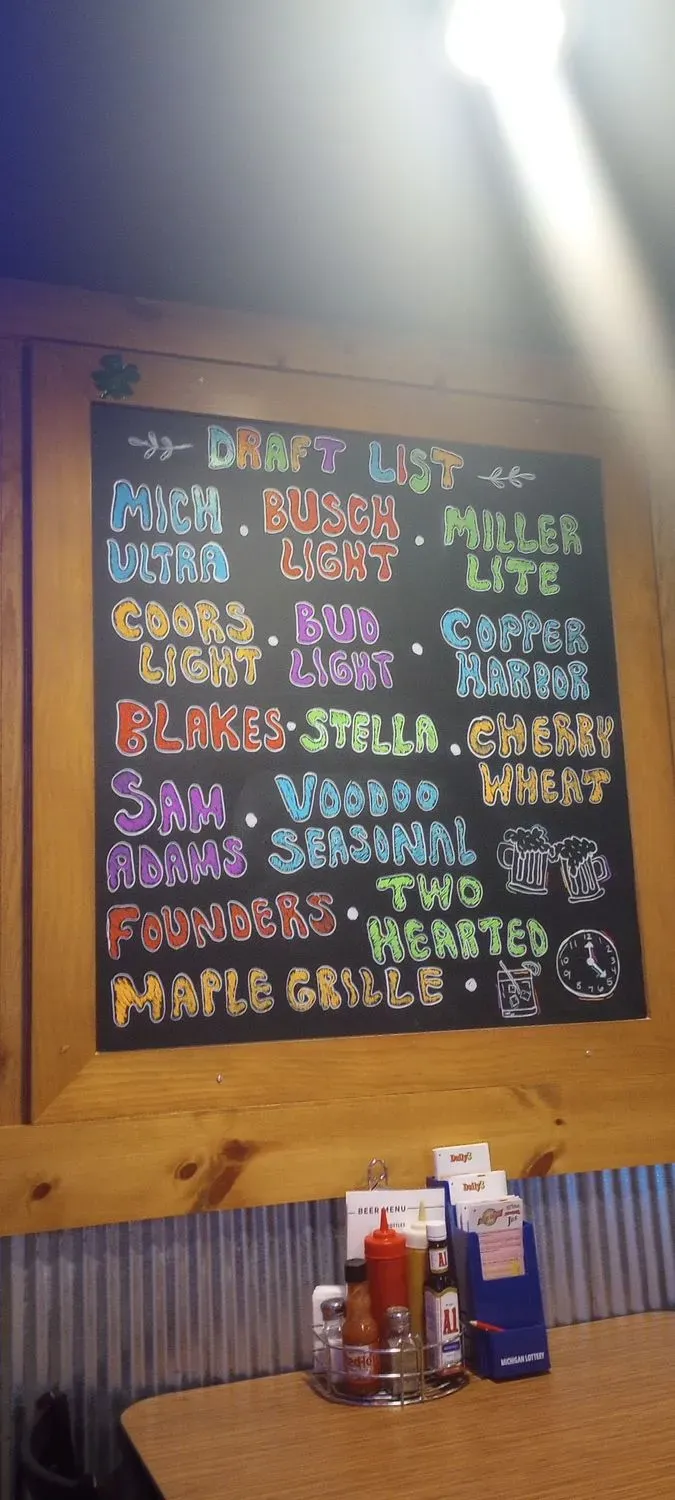 DRAFT LIST
MICH ULTRA • BUSCH LIGHT • MILLER LITE
COORS LIGHT • BUD LIGHT • COPPER HARBOR
BLAKES • STELLA • CHERRY WHEAT
SAM ADAMS • VOODOO SEASONAL
FOUNDERS • TWO HEARTED
MAPLE GRILLE •
12
11
2
10
3
9
4
8
5
7 6
Daily3
Daily3
BEER MENU
A1
A1
MICHIGAN LOTTERY